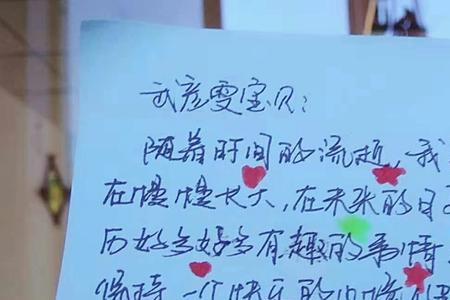 武彦雯宝贝：
随着时间的流逝，我
在慢慢长大，在未来的日子
历好多好多有趣的事情
保持一个快乐的心情